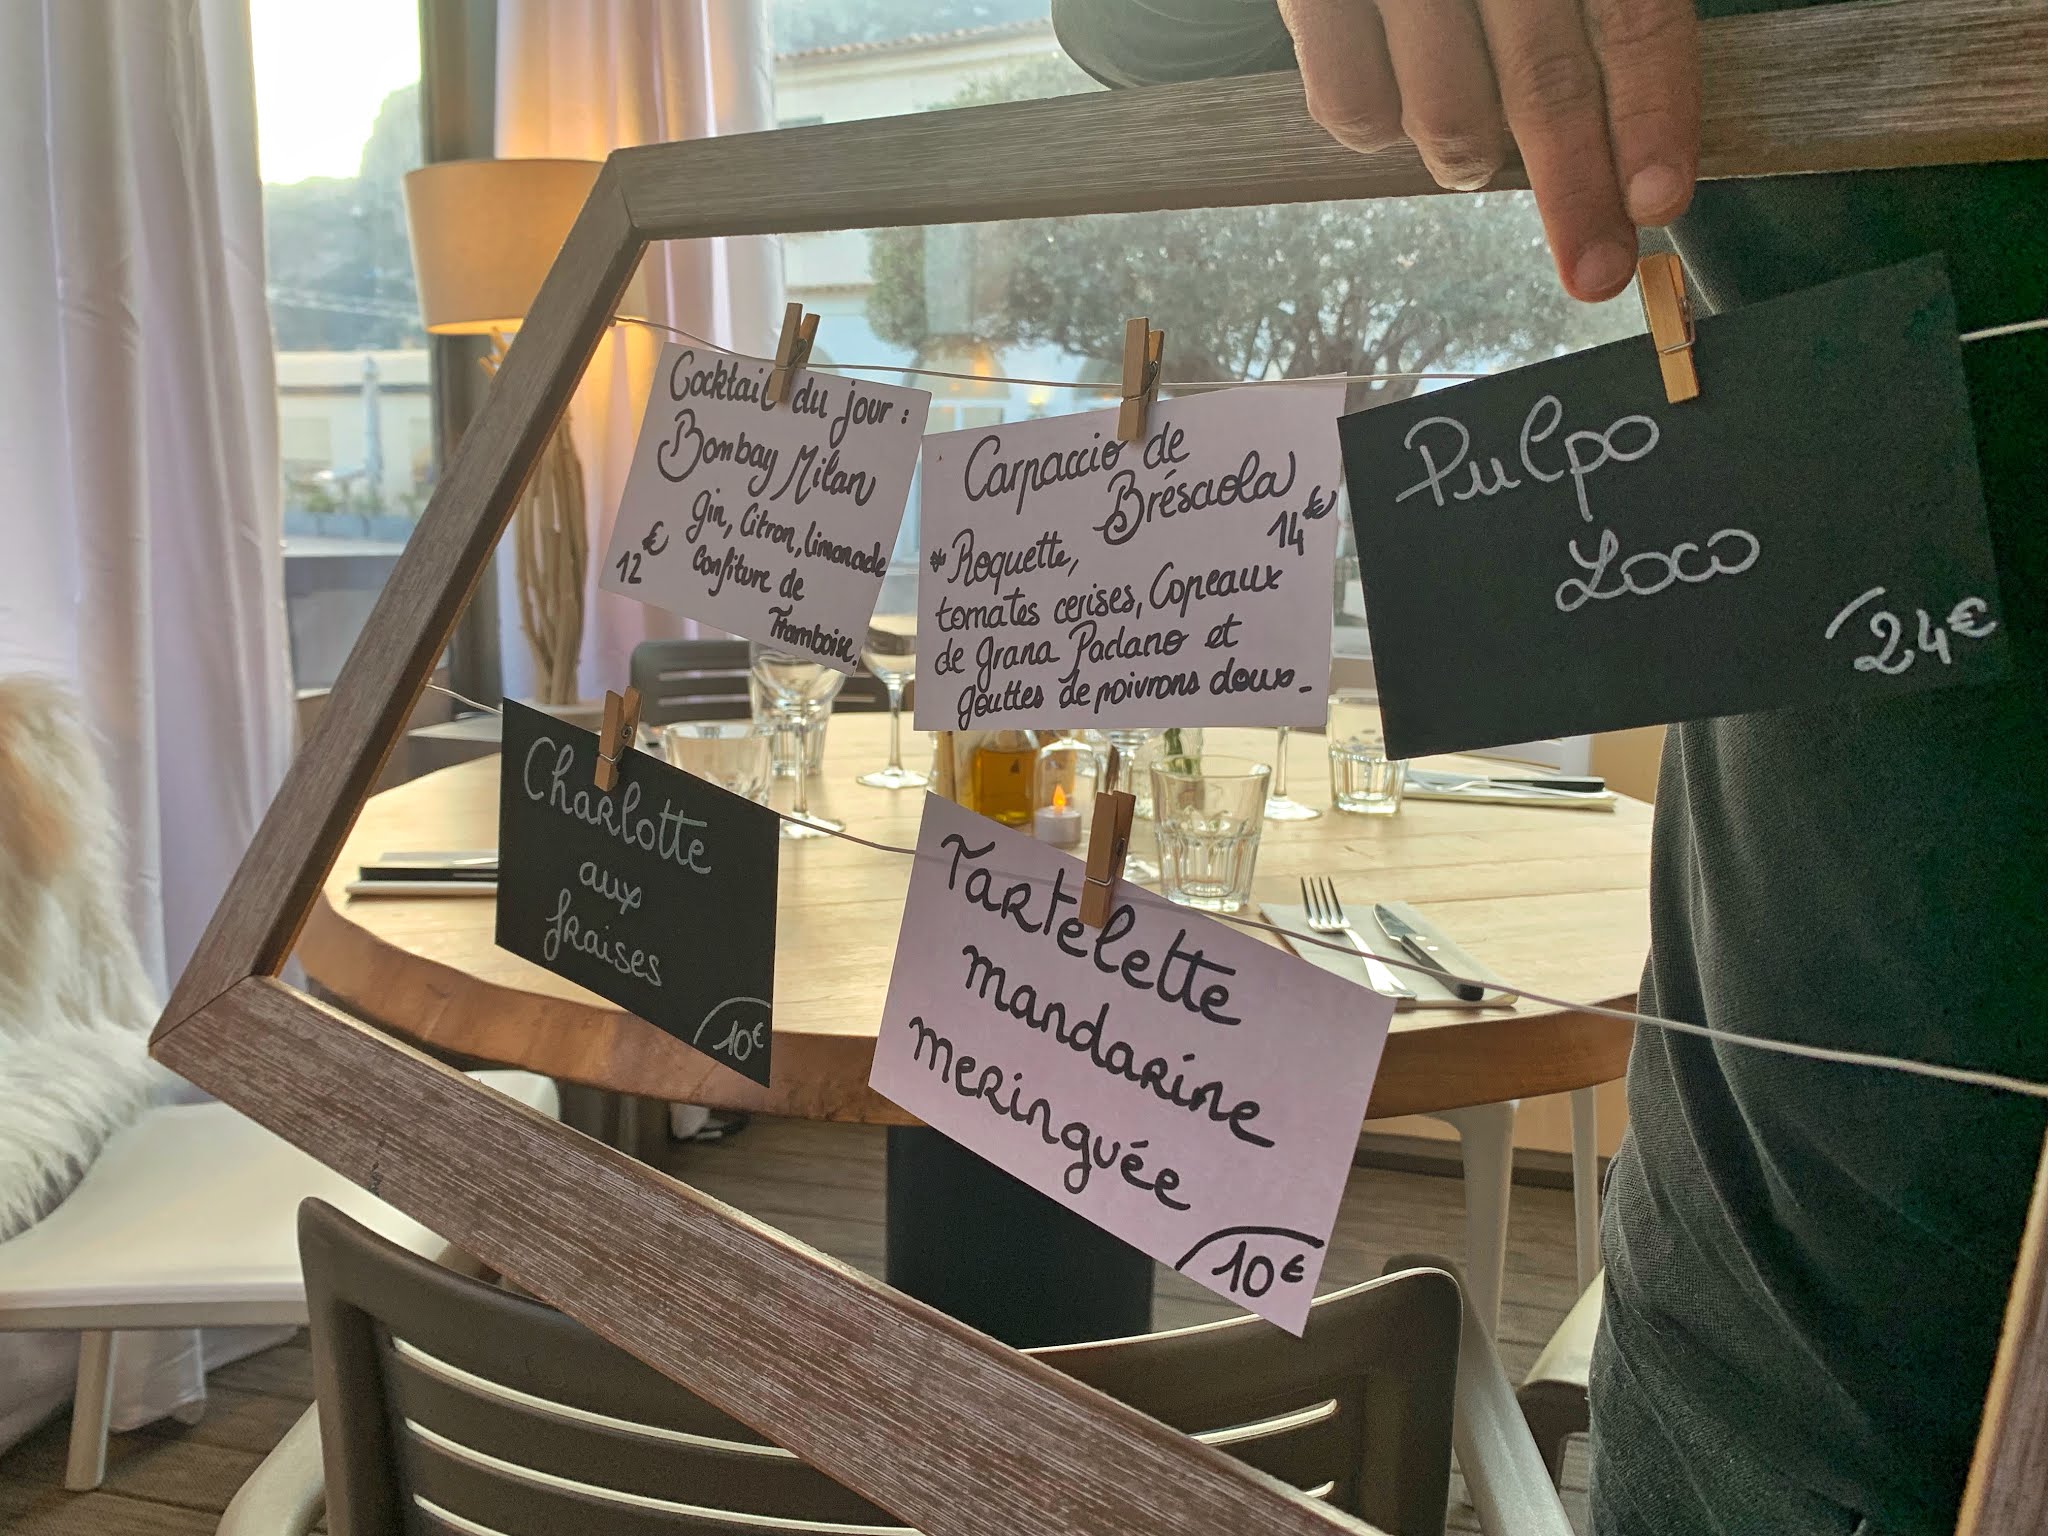 Cocktail du jour :
Bombay Milan
Gin, Citron, limonade
Confiture de
Framboise.
12€
Carpaccio de
Brésaola
14€
* Roquette,
tomates cerises, Copeaux
de grana Padano et
gouttes de poivrons doux_
Pulpo
Loco
24€
Charlotte
aux
fraises
10€
Tartelette
mandarine
meringuée
10€